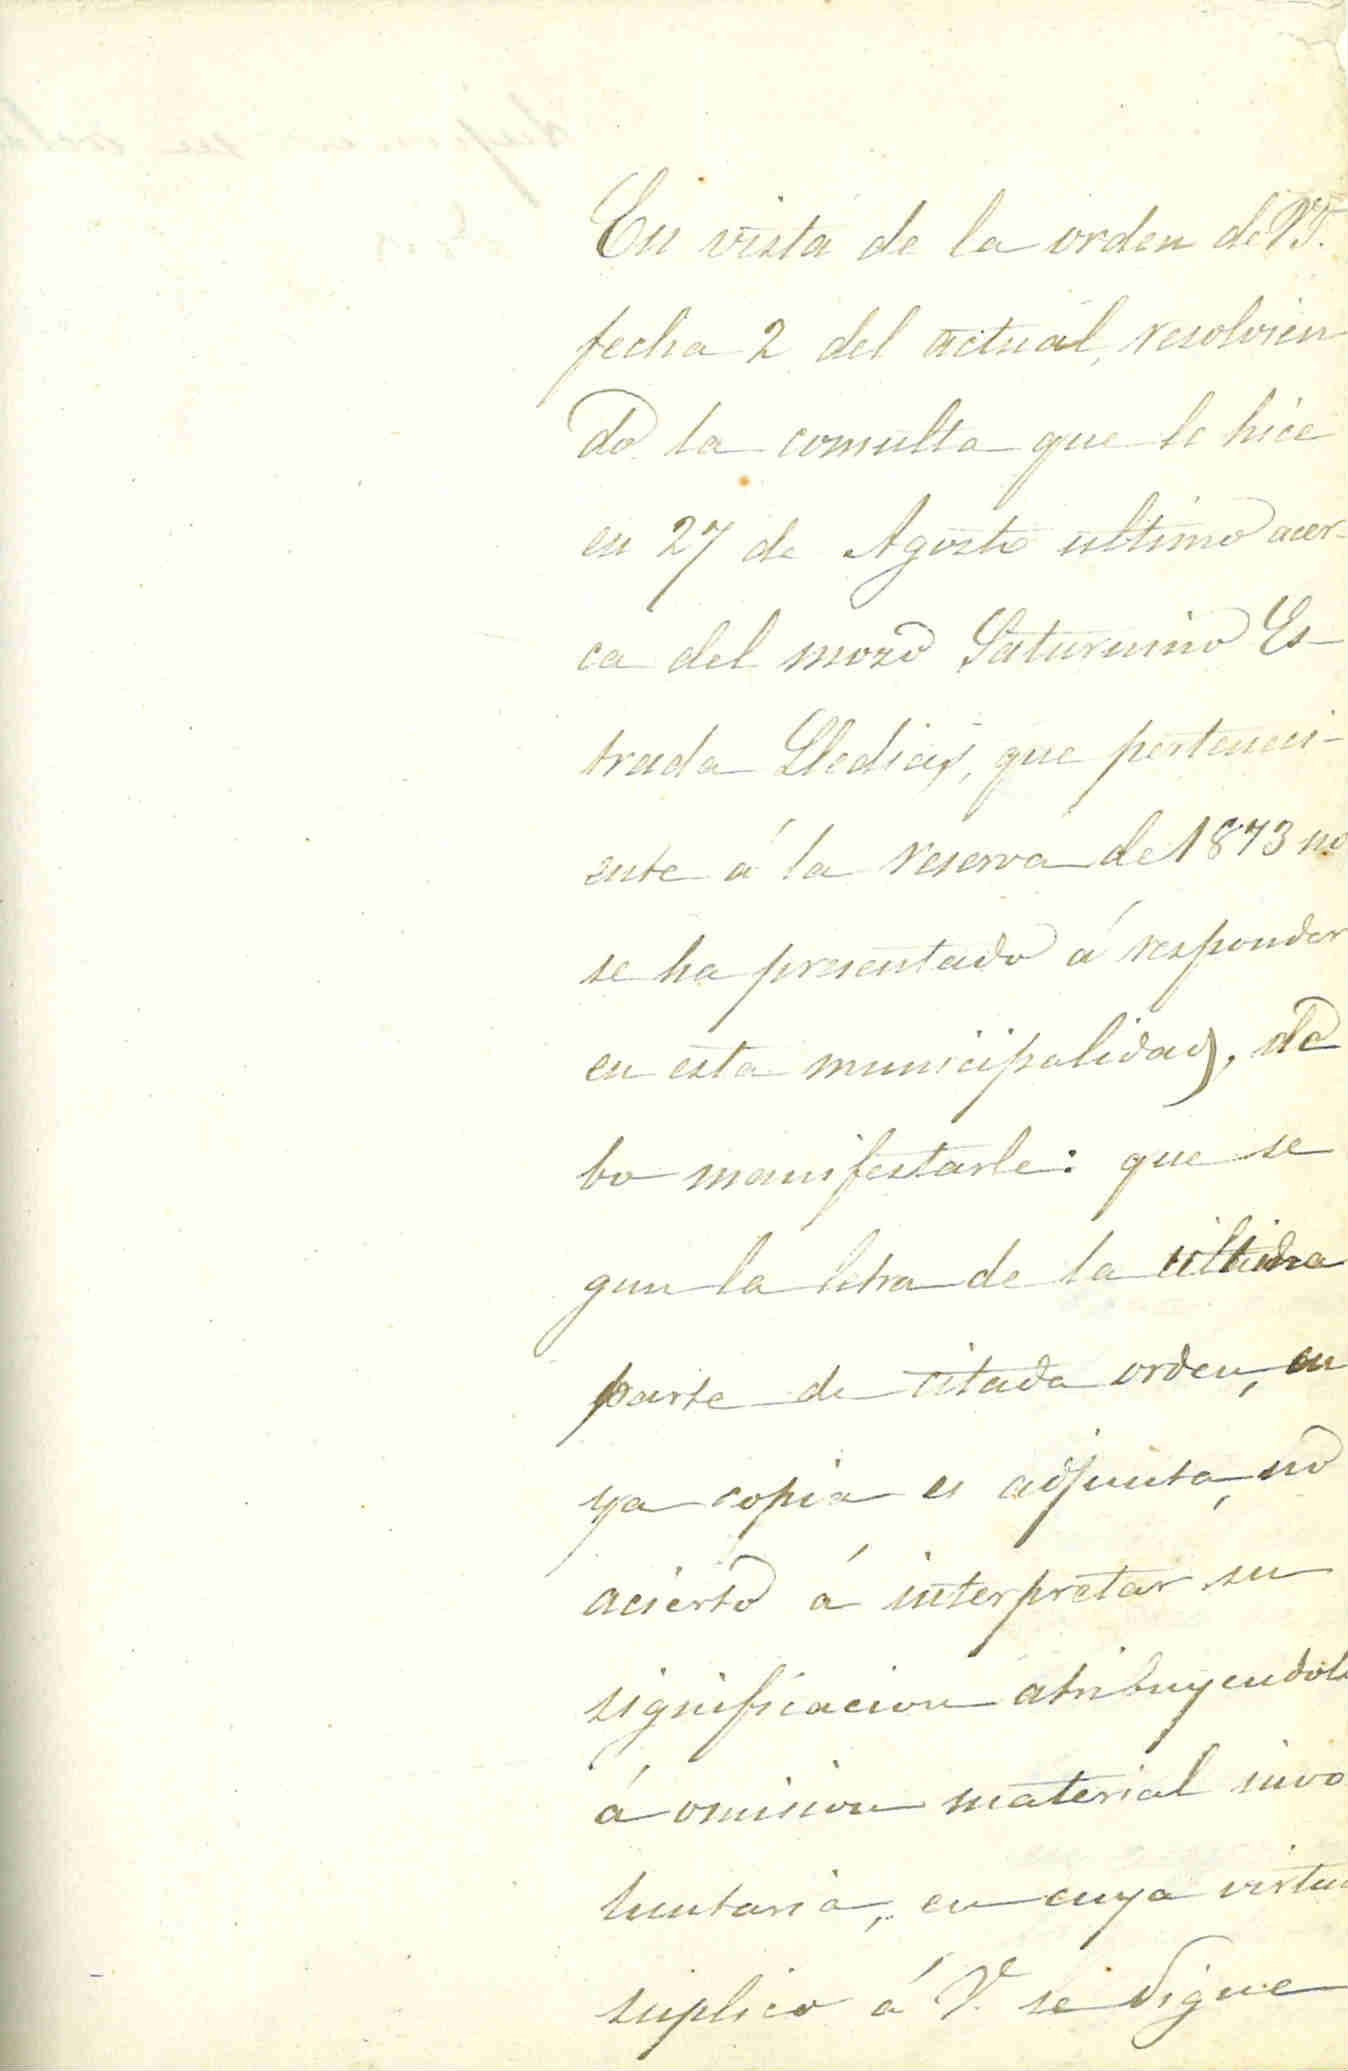 En vista de la orden de V.
fecha 2 del actual, resolvien
do la consulta que le hice
en 27 de Agosto ultimo acer-
ca del mozo Saturnino Es-
trada que perteneci-
ente á la reserva de 1873 no
se ha presentado á responder
en esta municipalidad, de
bo manifestarle: que se
gun la letra de la ultima
parte de citada orden, cu
ya copia es adjunta, no
acierto á interpretar su
significacion atribuyendola
á omision material invo
luntaria, en cuya virtud
suplico á V. se digne